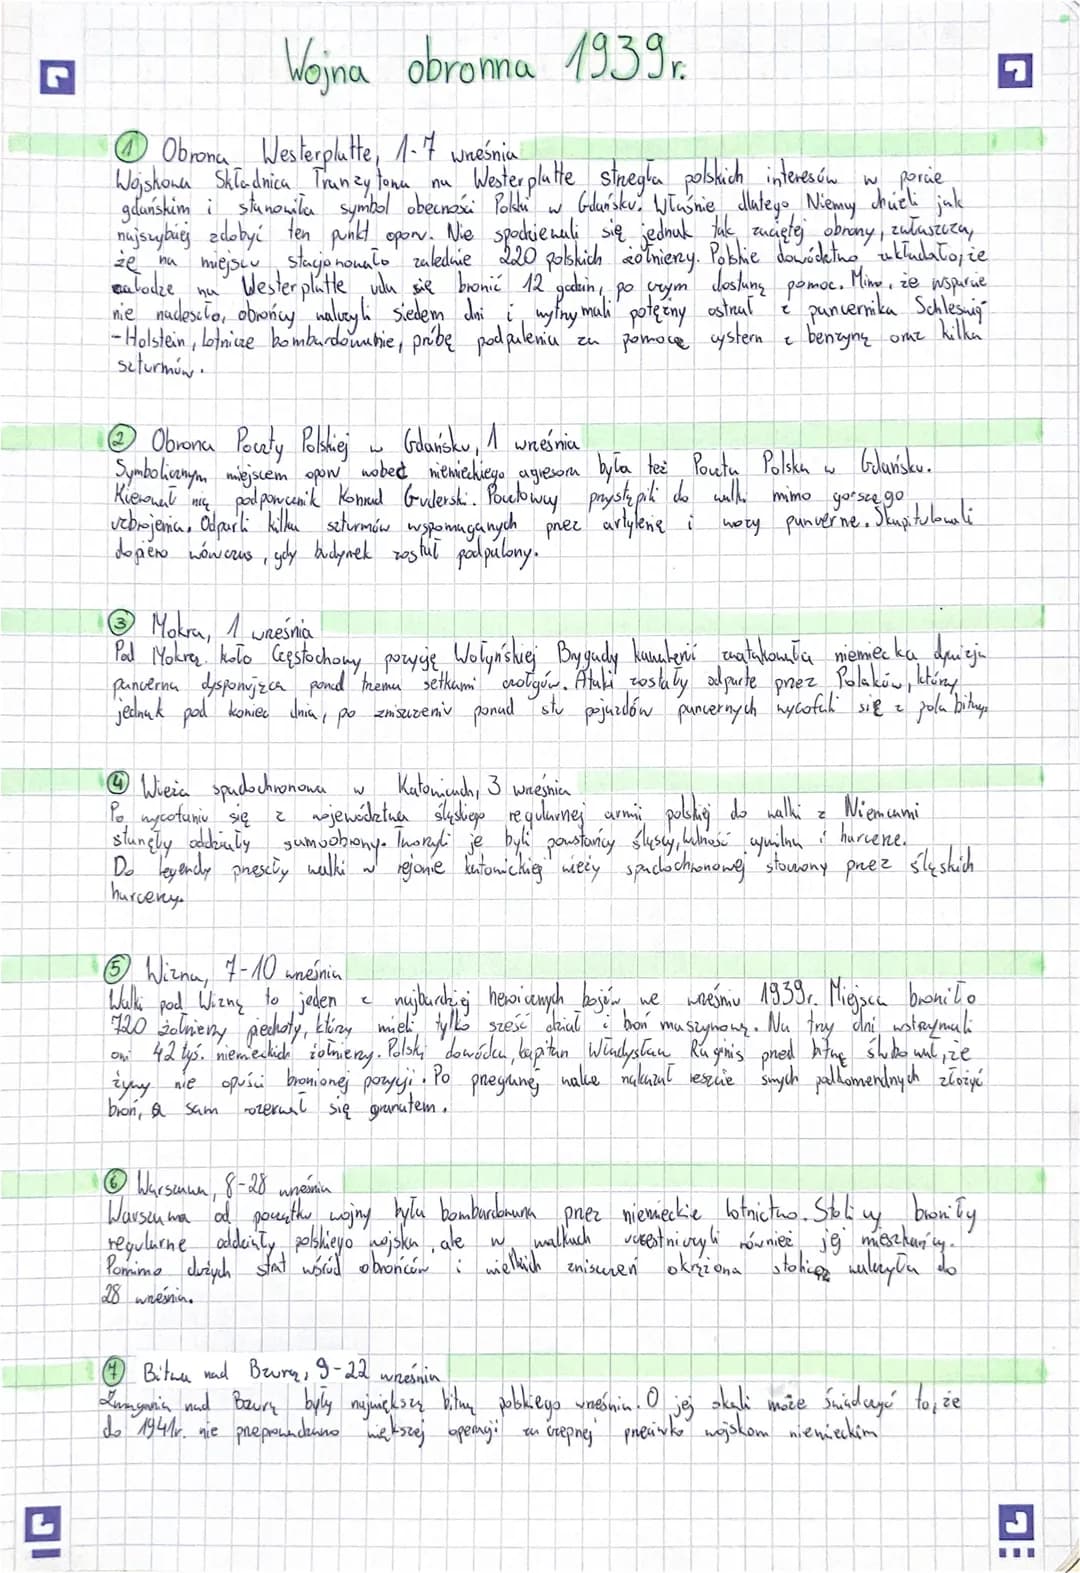 Wojna obronna 1939r.
① Obrona Westerplatte, 1-7 września
Wojskowa Składnica Tranzytowa na Westerplatte strzegła polskich interesów w porcie
gdańskim i stanowiła symbol obecności Polski w Gdańsku. Właśnie dlatego Niemcy chcieli jak
najszybciej zdobyć ten punkt oporu. Nie spodziewali się jednak tak zaciętej obrony, zwłaszcza,
że na miejscu stacjonowało zaledwie 220 polskich żołnierzy. Polskie dowództwo zakładało, że
załodze na Westerplatte uda się bronić 12 godzin, po czym dostaną pomoc. Mimo, że wsparcie
nie nadeszło, obrońcy walczyli siedem dni i wytrzymali potężny ostrzał z pancernika Schleswig
-Holstein, lotnicze bombardowanie, próbę podpalenia za pomocą cystern z benzyną oraz kilka
szturmów.
② Obrona Poczty Polskiej w Gdańsku, 1 września
Symbolicznym miejscem oporu wobec niemieckiego agresora była też Poczta Polska w Gdańsku.
Kierował nią podporucznik Konrad Guderski. Pocztowcy przystąpili do walki mimo gorszego
uzbrojenia. Odparli kilka szturmów wspomaganych przez artylerię i wozy pancerne. Skapitulowali
dopiero wówczas, gdy budynek został podpalony.
③ Mokra, 1 września
Pod Mokrą koło Częstochowy pozycję Wołyńskiej Brygady kawalerii zaatakowała niemiecka dywizja
pancerna dysponująca ponad trzema setkami czołgów. Ataki zostały odparte przez Polaków, którzy
jednak pod koniec dnia, po zniszczeniu ponad stu pojazdów pancernych wycofali się z pola bitwy.
④ Wieża spadochronowa w Katowicach, 3 września
Po wycofaniu się z województwa śląskiego regularnej armii polskiej do walki z Niemcami
stanęły oddziały samoobrony. Tworzyli je byli powstańcy śląscy, ludność cywilna i harcerze.
Do legendy przeszły walki w rejonie katowickiej wieży spadochronowej stoczony przez śląskich
harcerzy.
⑤ Wizna, 7-10 września
Walki pod Wizną to jeden z najbardziej heroicznych bojów we wrześniu 1939r. Miejsca broniło
720 żołnierzy piechoty, którzy mieli tylko sześć dział i broń maszynową. Na trzy dni wstrzymali
oni 42 tyś. niemieckich żołnierzy. Polski dowódca, kapitan Władysław Raginis przed bitwą ślubował, że
żywy nie opuści bronionej pozycji. Po przegranej walce nakazał reszcie swych podkomendnych złożyć
broń, a sam rozerwał się granatem.
⑥ Warszawa, 8-28 września
Warszawa od początku wojny była bombardowana przez niemieckie lotnictwo. Stolicy broniły
regularne oddziały polskiego wojska, ale w walkach uczestniczyli również jej mieszkańcy.
Pomimo dużych strat wśród obrońców i wielkich zniszczeń okrążona stolica walczyła do
28 września.
⑦ Bitwa nad Bzurą, 9-22 września
Zmagania nad Bzurą były największą bitwą polskiego września. O jej skali może świadczyć to, że
do 1941r. nie przeprowadzono większej operacji zaczepnej przeciwko wojskom niemieckim